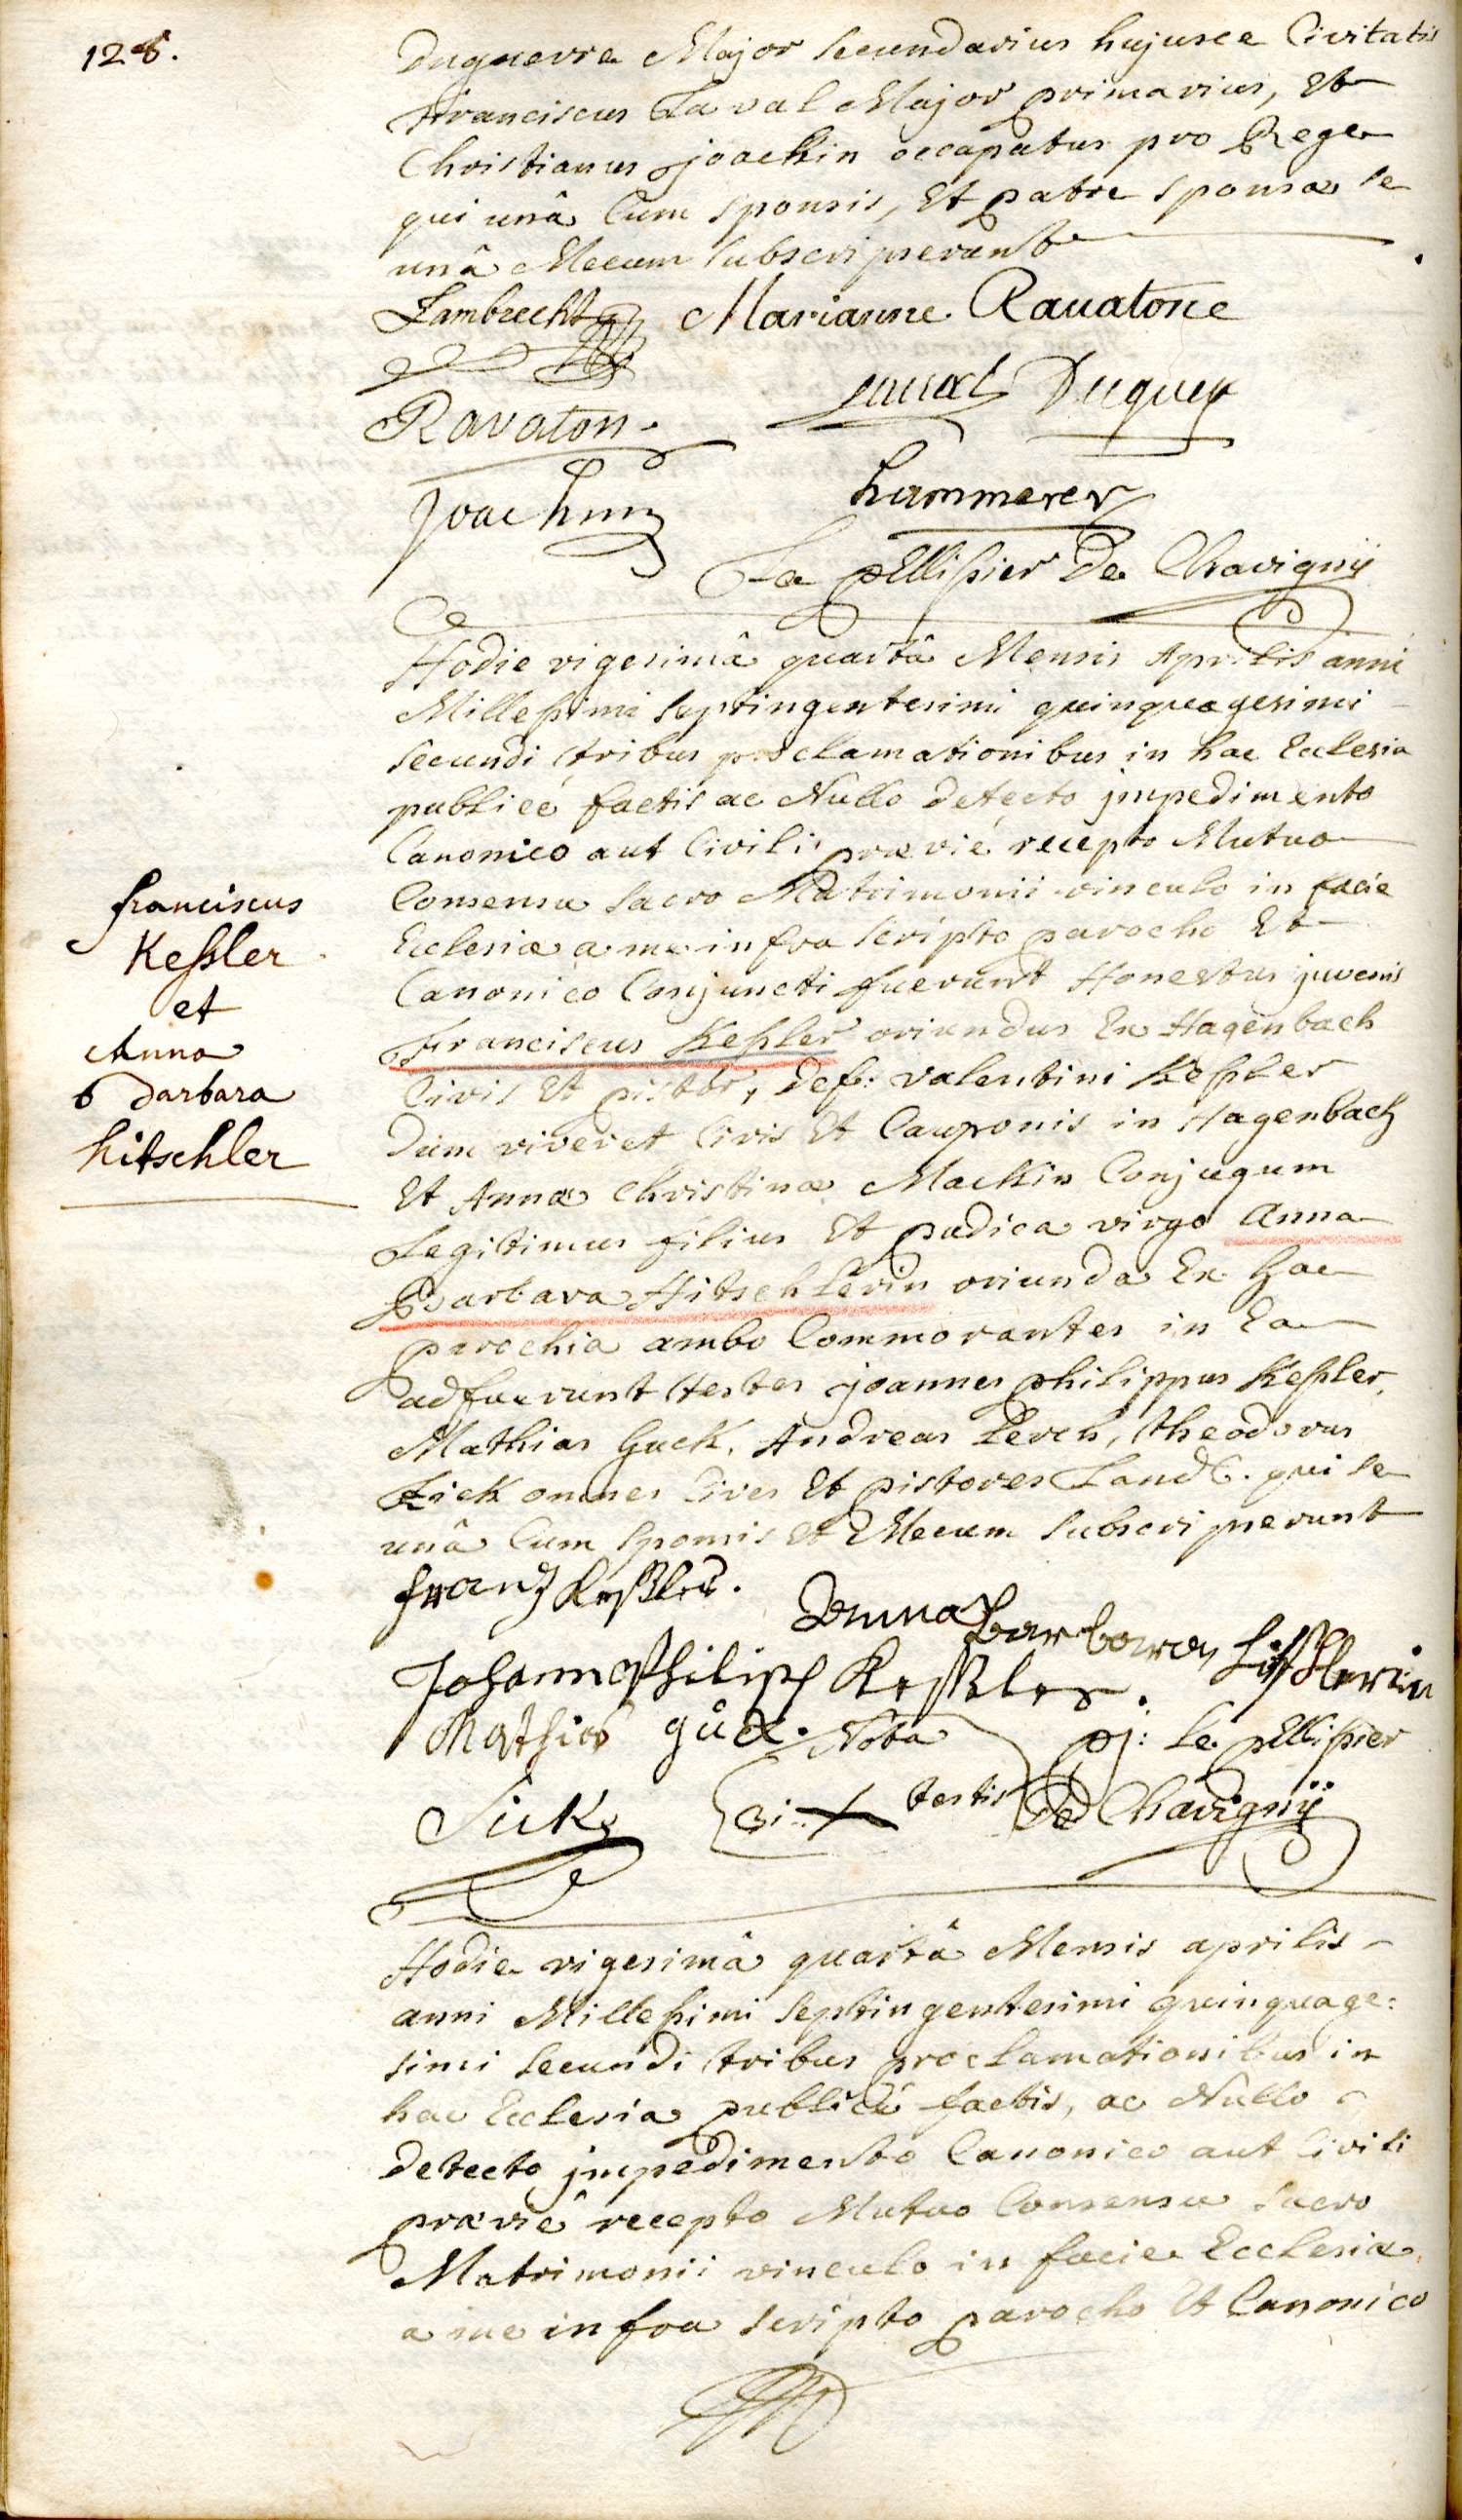 128.
Duguerre Major Secundarius hujusce Civitatis
Franciscus Laval Major primarius, Et
Christianus joachin occupatus pro Rege
qui unâ Cum Sponsis, Et patre Sponsæ se
unâ Mecum Subscripserunt
Lambrecht Marianne Rauatone
Laual Duguer
Ravaton.
Joachim
hammerer
Le pellissier De Chavignÿ
Hodie vigesimâ quartâ Mensis Aprilis anni
Millessimi Septingentesimi quinquagesimi
Secundi tribus proclamationibus in hac Ecclesia
publicé factis ac Nullo detecto jmpedimento
Canonico aut Civili prævié recepto Mutuo
Consensu Sacro Matrimonii vinculo in facie
Ecclesiæ a me infra Scripto parocho Et
Canonico Conjuncti fuerunt Honestus juvenis
Franciscus Keßler oriundus Ex Hagenbach
Civis Et pistor, def: valentini Keßler
Dum viveret Civis Et Cauponis in Hagenbach
Et Annæ Christinæ Mackin Conjugum
Legitimus filius Et pudica virgo Anna
Barbara Hitschlerin oriunda Ex hac
parochia ambo Commorantes in Ea
adfuerunt testes joannes philippus Keßler,
Mathias Guck, Andreas Lerch, theodorus
Sick omnes Cives Et pistores Land. qui se
unâ Cum Sponsis et Mecum Subscripserunt
franciscus
Keßler
et
Anna
Barbara
hitschler
frantz Keßler.
Anna barbara hitschlerin
Johann Philipp Keßler.
Mathias gück. Nota pj: Le pellissier
Sick testis De Chavignÿ
Hodie vigesimâ quartâ Mensis aprilis
anni Millessimi Septingentesimi quinquage:
simi Secundi tribus proclamationibus in
hac Ecclesia publicé factis, ac Nullo
detecto jmpedimento Canonico aut Civili
præviê recepto Mutuo Consensu Sacro
Matrimonii vinculo in facie Ecclesiæ
a me infra Scripto parocho Et Canonico